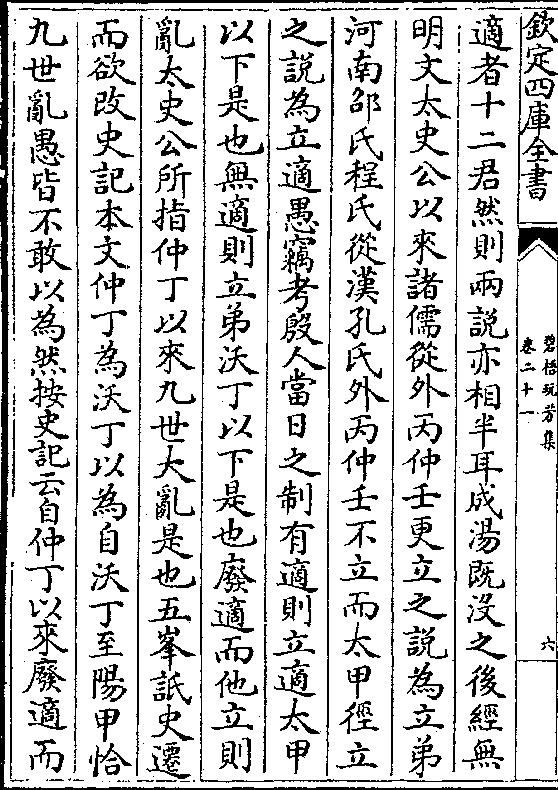 欽定四庫全書
碧梧玩芳集
卷二十一
六
適者十二君然則兩説亦相半耳成湯既沒之後經無
明文太史公以來諸儒從外丙仲壬更立之説為立弟
河南邵氏程氏從漢孔氏外丙仲壬不立而太甲徑立
之説為立適愚竊考殷人當日之制有適則立適太甲
以下是也無適則立弟沃丁以下是也廢適而他立則
亂太史公所指仲丁以來九世大亂是也五峯詆史遷
而欲改史記本文仲丁為沃丁以為自沃丁至陽甲恰
九世亂愚皆不敢以為然按史記云自仲丁以來廢適而